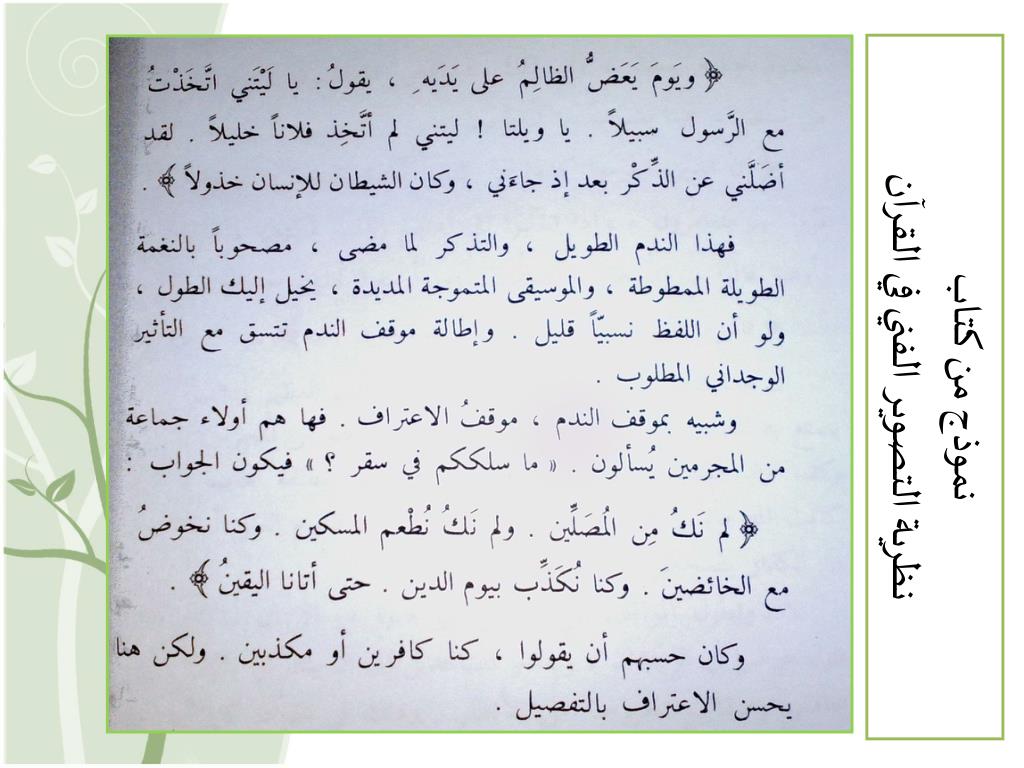 ﴿ ويَومَ يَعَضُّ الظالِمُ على يَدَيه ِ ، يقولُ : يا لَيْتَني اتَّخَذْتُ
مع الرَّسول سبيلاً . يا ويلتا ! ليتني لم أتَّخِذ فلاناً خليلاً . لقد
أضَلَّني عن الذِّكْر بعد إذ جاءَني ، وكان الشيطان للإنسان خذولاً ﴾ .
فهذا الندم الطويل ، والتذكر لما مضى ، مصحوباً بالنغمة
الطويلة الممطوطة ، والموسيقى المتموجة المديدة ، يخيل إليك الطول ،
ولو أن اللفظ نسبيّاً قليل . وإطالة موقف الندم تتسق مع التأثير
الوجداني المطلوب .
وشبيه بموقف الندم ، موقفُ الاعتراف . فها هم أولاء جماعة
من المجرمين يُسألون . « ما سلككم في سقر ؟ » فيكون الجواب :
﴿ لم نَكُ مِن المُصَلِّين . ولم نَكُ نُطْعم المسكين . وكنا نخوضُ
مع الخائضينَ . وكنا نُكَذِّب بيوم الدين . حتى أتانا اليقينُ ﴾ .
وكان حسبهم أن يقولوا ، كنا كافرين أو مكذبين . ولكن هنا
يحسن الاعتراف بالتفصيل .
نموذج من كتاب
نظرية التصوير الفني في القرآن